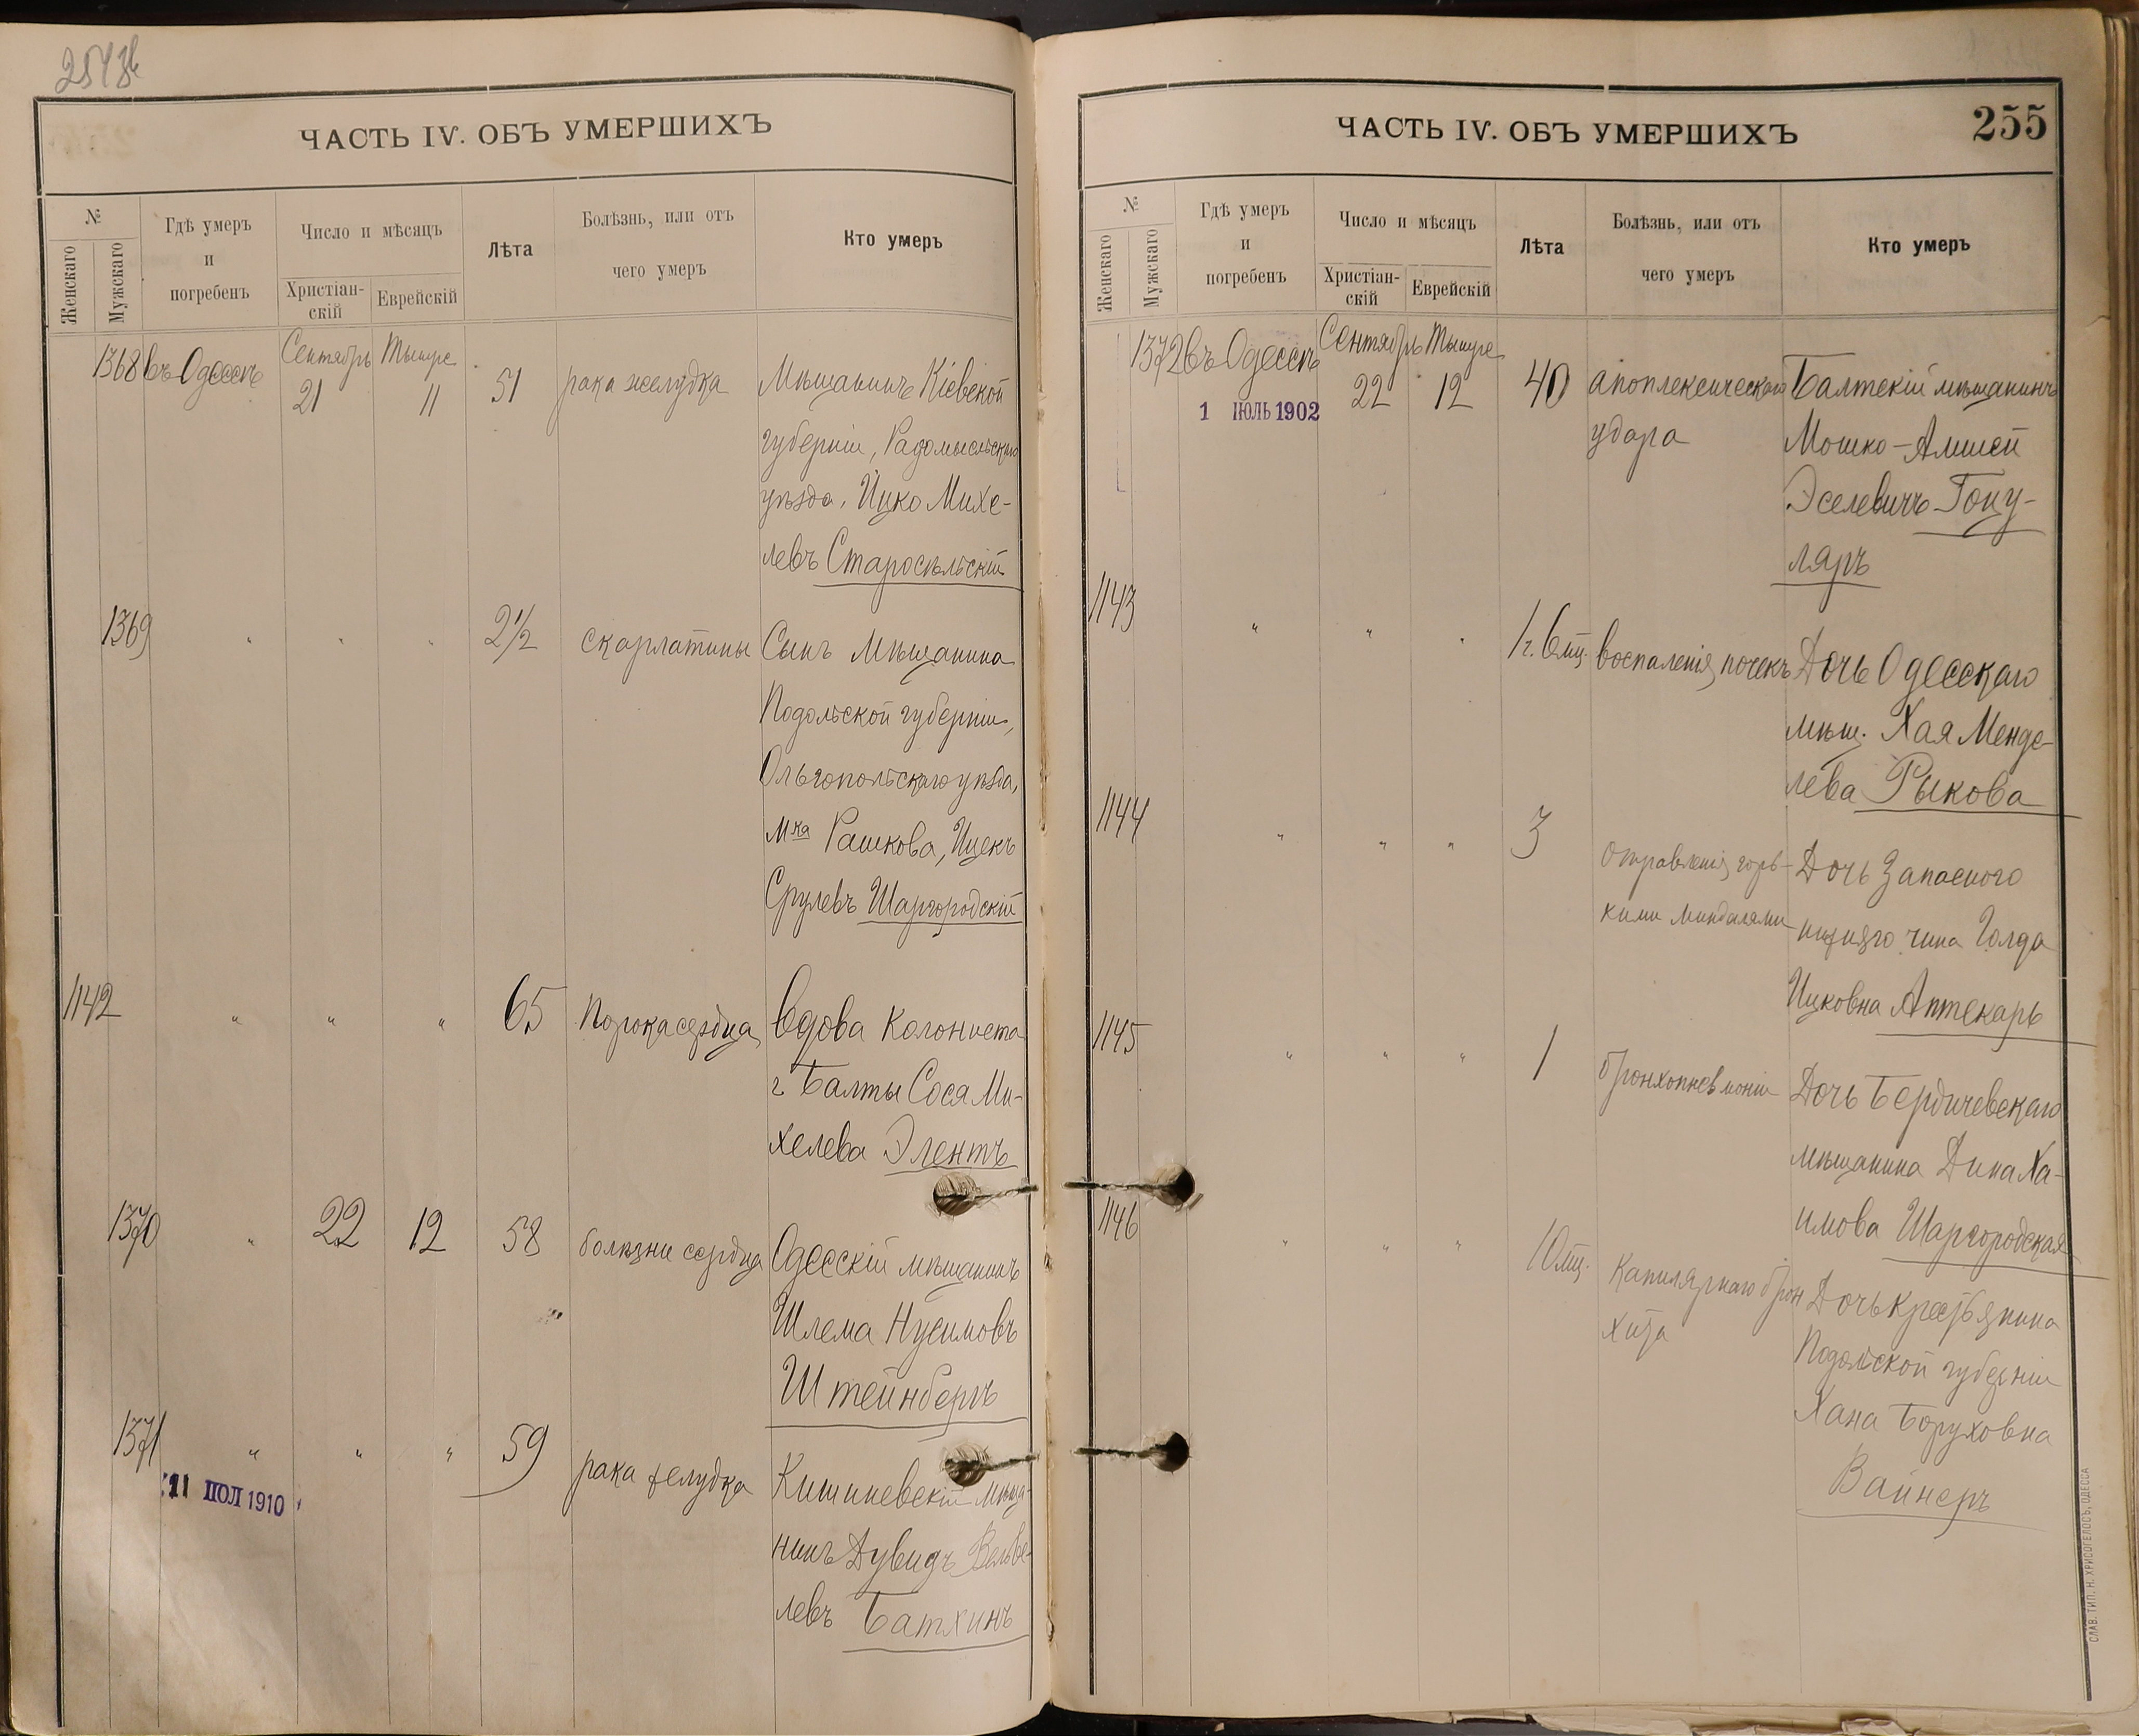 ЧАСТЬ IV. ОБЪ УМЕРШИХЪ
№
Женскаго
Мужскаго
Гдѣ умеръ
и
погребенъ
Число и мѣсяцъ
Христіан-
скій
Еврейскій
Лѣта
Болѣзнь, или отъ
чего умеръ
Кто умеръ
1368 въ Одессѣ Сентябрь 21 Тышре 11 51 рака желудка Мѣщанинъ Кіевской
губерніи, Радомысльскаго
уѣзда, Ицко Михе-
левъ Старосѣльскій
1369 " " " 2½ скарлатины Сынъ мѣщанина
Подольской губерніи,
Ольгопольскаго уѣзда,
мка Рашкова, Ицекъ
Срулевъ Шаргородскій
1142 " " " 65 Порока сердца Вдова колониста
г. Балты Сося Ми-
хелева Элентъ
1370 " 22 12 58 болѣзни сердца Одесскій мѣщанинъ
Шлема Нусимовъ
Штейнбергъ
1371 " " " 59 рака желудка Кишиневскій мѣща-
11 ПОЛ 1910
нинъ Дувидъ Вольве-
левъ Батхинъ
ЧАСТЬ IV. ОБЪ УМЕРШИХЪ
255
№
Женскаго
Мужскаго
Гдѣ умеръ
и
погребенъ
Число и мѣсяцъ
Христіан-
скій
Еврейскій
Лѣта
Болѣзнь, или отъ
чего умеръ
Кто умеръ
1372 въ Одессѣ Сентябрь 22 Тышре 12 40 апоплексическаго Балтскій мѣщанинъ
1 ІЮЛЬ 1902
удара Мошко-Амшей
Эселевичъ Гону-
ляръ
1143 " " " 1 г. 6 мц. воспаленія почекъ Дочь Одесскаго
мѣщ. Хая Менде-
лева Рыкова
1144 " " " 3 отравленія горь- Дочь запасного
кими миндалями нижняго чина Голда
Ицковна Аптекарь
1145 " " " 1 бронхопневмоніи Дочь Бердичевскаго
мѣщанина Дина Ха-
имова Шаргородская
1146 " " " 10 мц. Капилярнаго брон Дочь крестьянина
хита Подольской губерніи
Хана Боруховна
Вайнеръ
СЛАВ. ТИП. Н. ХРИСОГЕЛОСЪ, ОДЕССА